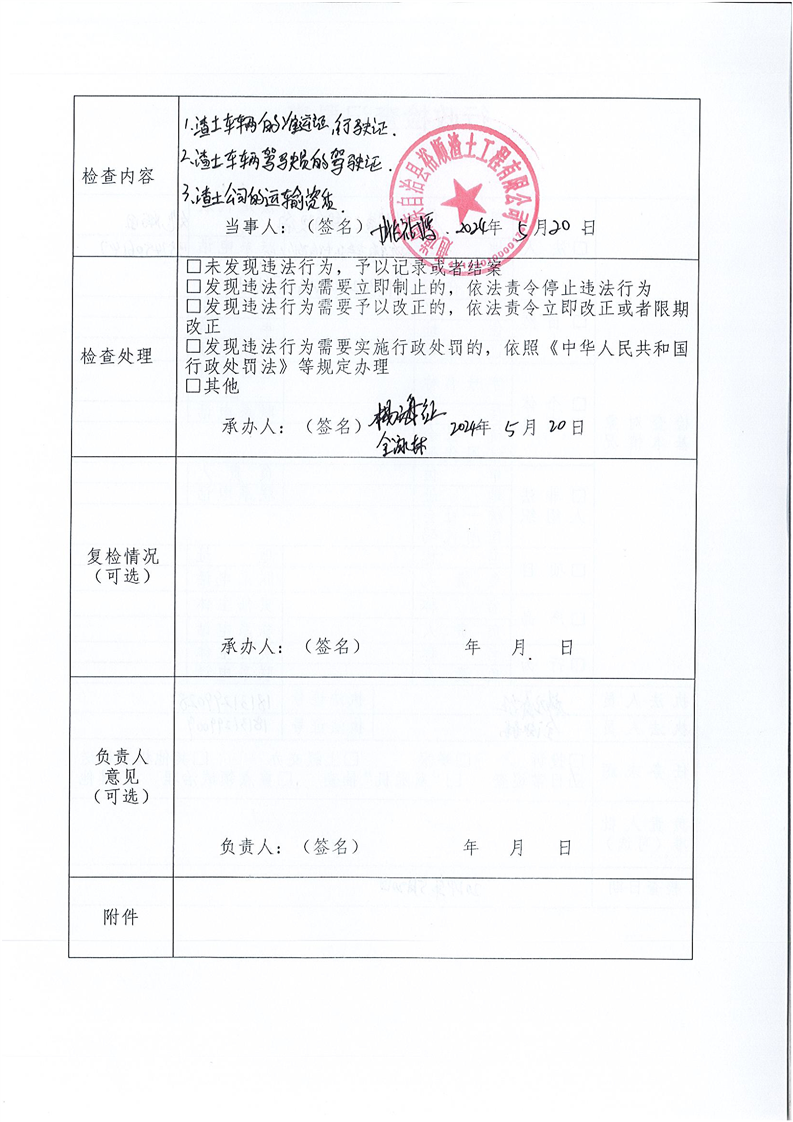 检查内容
1.渣土车辆的准运证,行驶证.
2.渣土车辆驾驶员的驾驶证.
3.渣土公司的运输资质.
自治县裕顺渣土工程有限公司
当事人：（签名） 2024年 5月20日
检查处理
□未发现违法行为，予以记录或者结案
□发现违法行为需要立即制止的，依法责令停止违法行为
□发现违法行为需要予以改正的，依法责令立即改正或者限期
改正
□发现违法行为需要实施行政处罚的，依照《中华人民共和国
行政处罚法》等规定办理
□其他
承办人：（签名）杨海红 2024年 5月20日
复检情况
（可选）
承办人：（签名） 年 月 日
负责人
意见
（可选）
负责人：（签名） 年 月 日
附件